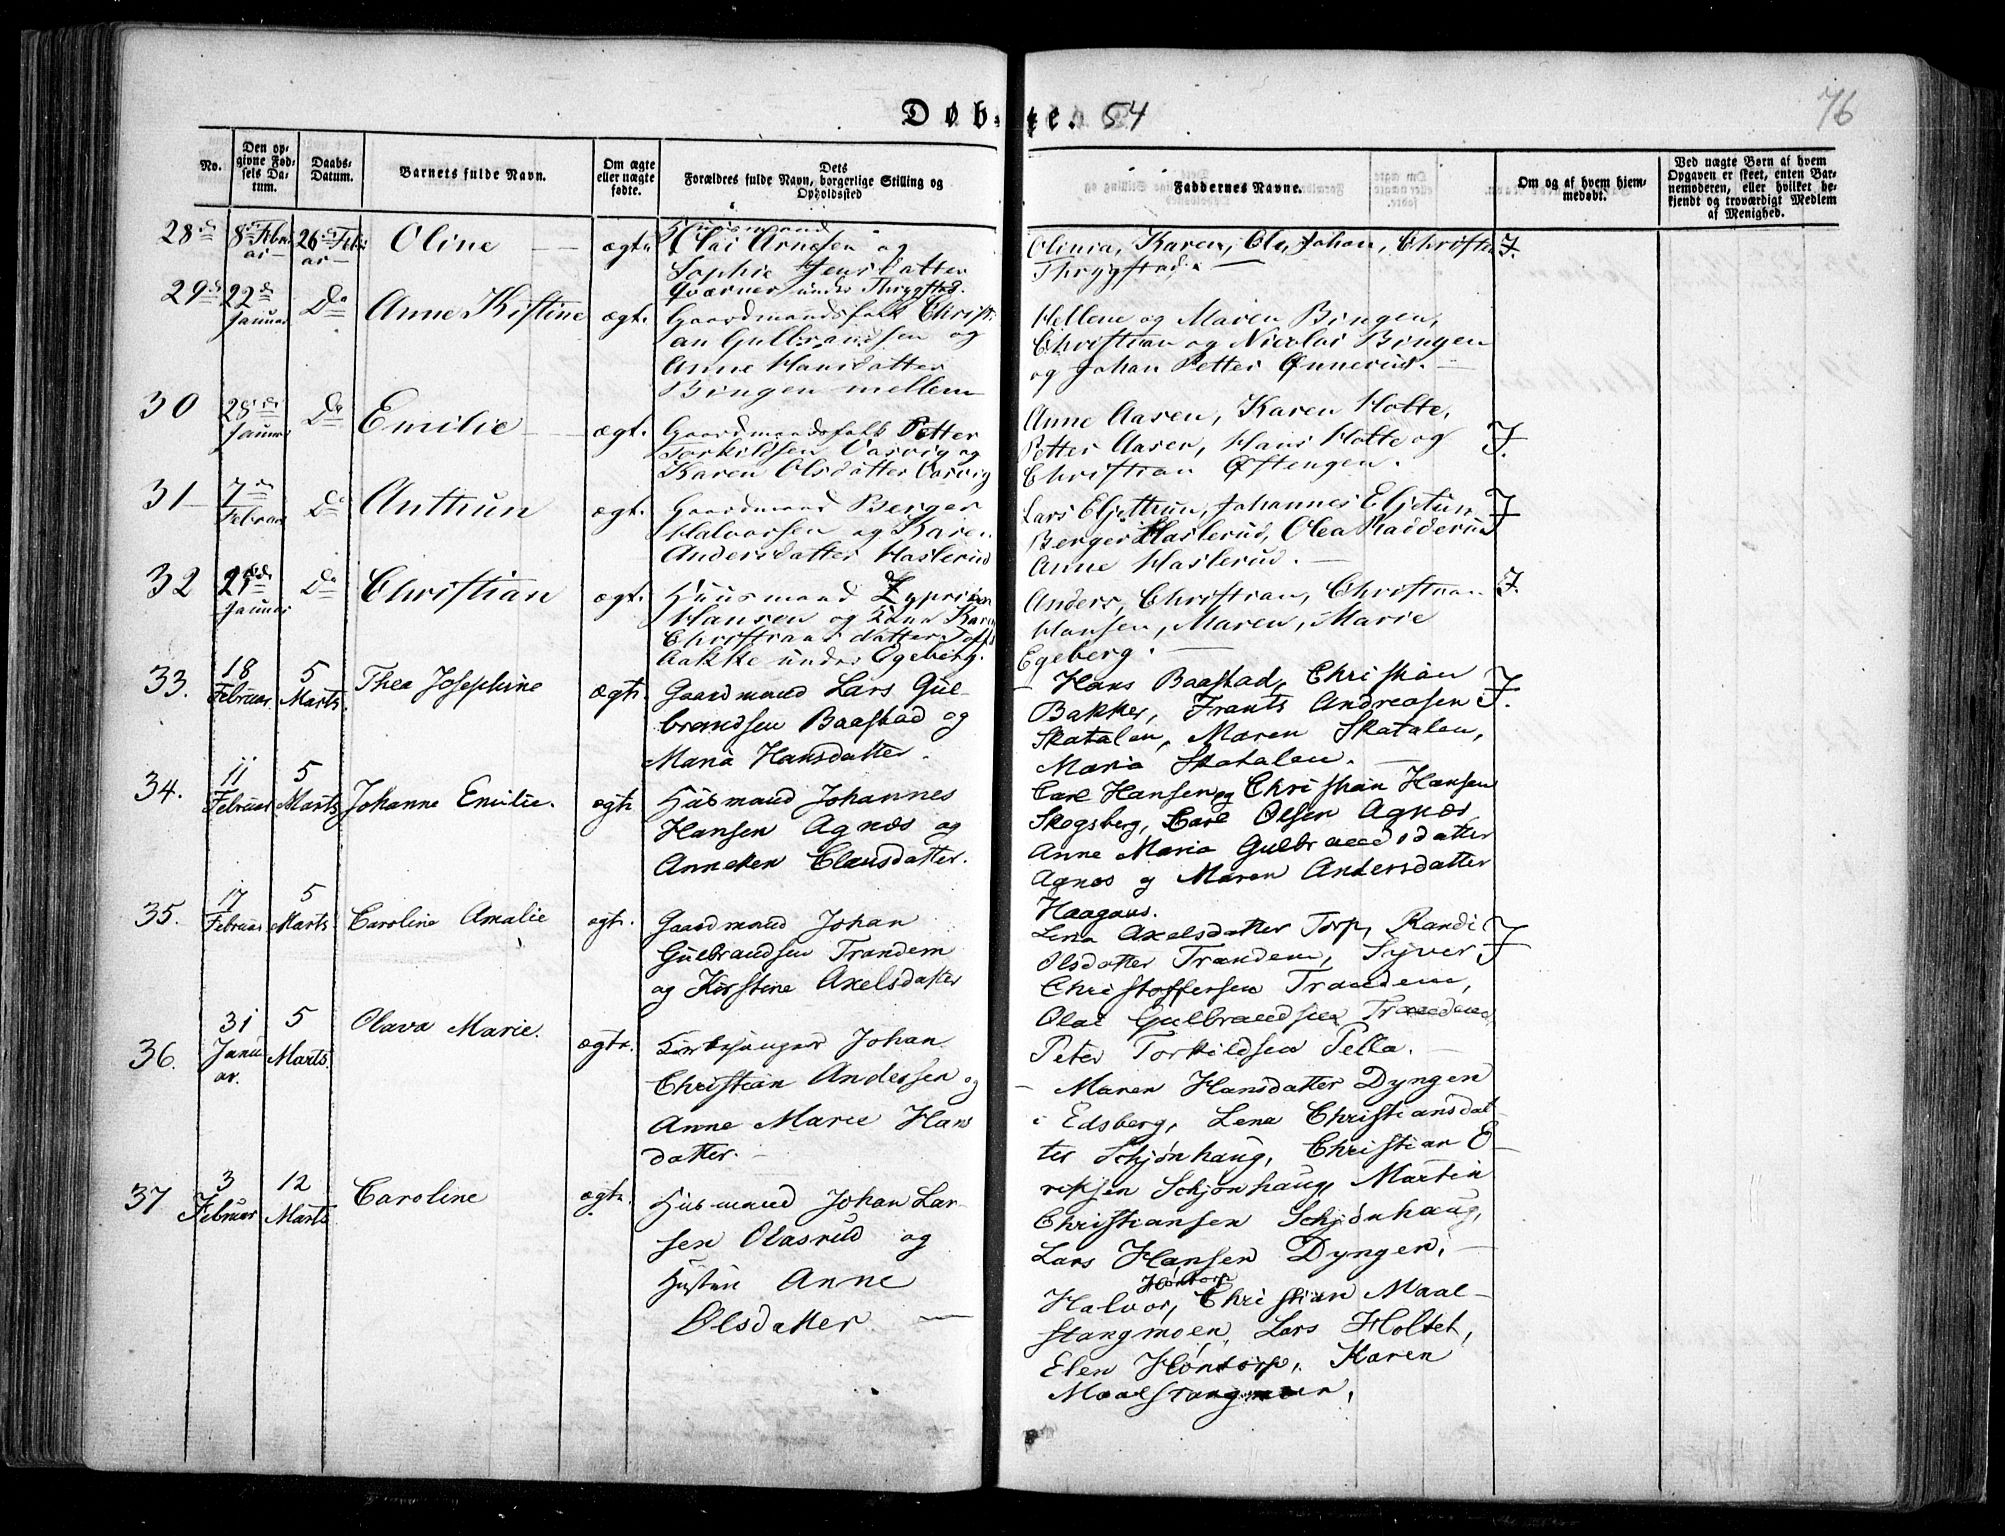 Døbte. 54
76
No.
Den op-
givne Fød-
sels Da-
tum.
Daabs-
Datum.
Barnets fulde Navn.
Om ægte
eller uægte
fødte.
Dets
Forældres fulde Navn, borgerlige Stilling og
Opholdssted
Faddernes Navne.
Om og af hvem hjem-
medøbt.
Ved uægte Børn af hvem
Opgaven er skeet, enten Bar-
nemoderen, eller hvilket be-
kjendt og troværdigt Medlem
af Menighed.
28de 8de Febru
ar
26de Febru
ar
Oline
ægte
Huusmand
Olai Arnesen og
Sophie Jensdatter
Qværner under Thrygstad.
Olinia, Karen, Ole, Johan, Christian
Thrygstad.
F.
29de 22de
Januar
Do
Anne Kistine
ægt.
Gaardmandsfolk Christi
an Gulbrandsen og
Anne Hansdatter
Bingen mellem
Hellene og Maren Bingen,
Christian og Nicolai Bingen
og Johan Petter Onnerud.
30 28de
Januar
Do
Emilie
ægt.
Gaardmandsfolk Petter
Torkildsen Varvig og
Karen Olsdatter Varvig
Anne Aasen, Karen Holte,
Petter Aasen, Hans Holte og
Christian Øftengen.
F.
31 7de
Februar
Do
Anthun
ægt.
Gaardmand Berger
Halvorsen og Karen
Andersdatter Haslerud
Lars Eljettun, Johannes Eljetun
Berger Haslerud, Olea Radderud
Anne Haslerud.
F
32
Januar
Do
Christian
ægt.
Huusmand Zyprian
Hansen og Karen
Christiansdatter
Aakke under Egeberg.
Anders, Christian, Christian
Hansen, Maren, Marie
Egeberg.
F.
33. 18
Februar
5
Marts.
Thea Josephine
ægte.
Gaardmand Lars Gul-
brandsen Baastad og
Maria Hansdatter.
Hans Baastad, Christian
Bakker, Frants Andreasen
Skatalen, Maren Skatalen,
Maria Skatalen.
F.
34. 11
Februar
5
Marts
Johanne Emilie.
ægte
Husmand Johannes
Hansen Agnæs og
Anneken Clausdatter.
Carl Hansen og Christian Hansen
Skogsberg, Carl Olsen Agnæs,
Anne Maria Gulbrandsdatter
Agnæs og Maren Andersdatter
Haagaas.
35. 17
Februar
5
Marts
Caroline Amalie
ægte.
Gaardmand Johan
Gulbrandsen Trandem
og Kirstine Axelsdatter
Lena Axelsdatter Torp, Randi
Olsdatter Trandem, Syver
Christoffersen Trandem,
Olai Gulbrandsen Trandem,
Peter Torkildsen Tella.
F
36. 31
Janu
ar.
5
Marts.
Olava Marie.
ægte.
Kirkesanger Johan
Christian Andersen og
Anne Marie Hans
datter.
Maren Hansdatter Dyngen
i Edsberg, Lena Christiansdat-
ter Schjønhaug, Christian E-
riksen Schjønhaug, Martin
Christiansen Schjønhaug,
Lars Hansen Dyngen.
37 3
Februar
12
Marts
Caroline
ægte.
Husmand Johan Lar-
sen Olasrud og
Hustru Anne
Olsdatter
Høntorp
Halvor, Christian Maal-
stangmoen, Lars Holtet,
Elen Høntorp, Karen
Maalstangmoen.